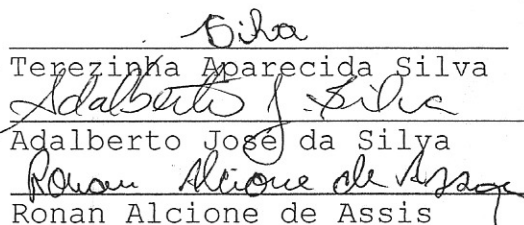 Silva
Terezinha Aparecida Silva
Adalberto J. Silva
Adalberto José da Silva
Ronan Alcione de Assis
Ronan Alcione de Assis